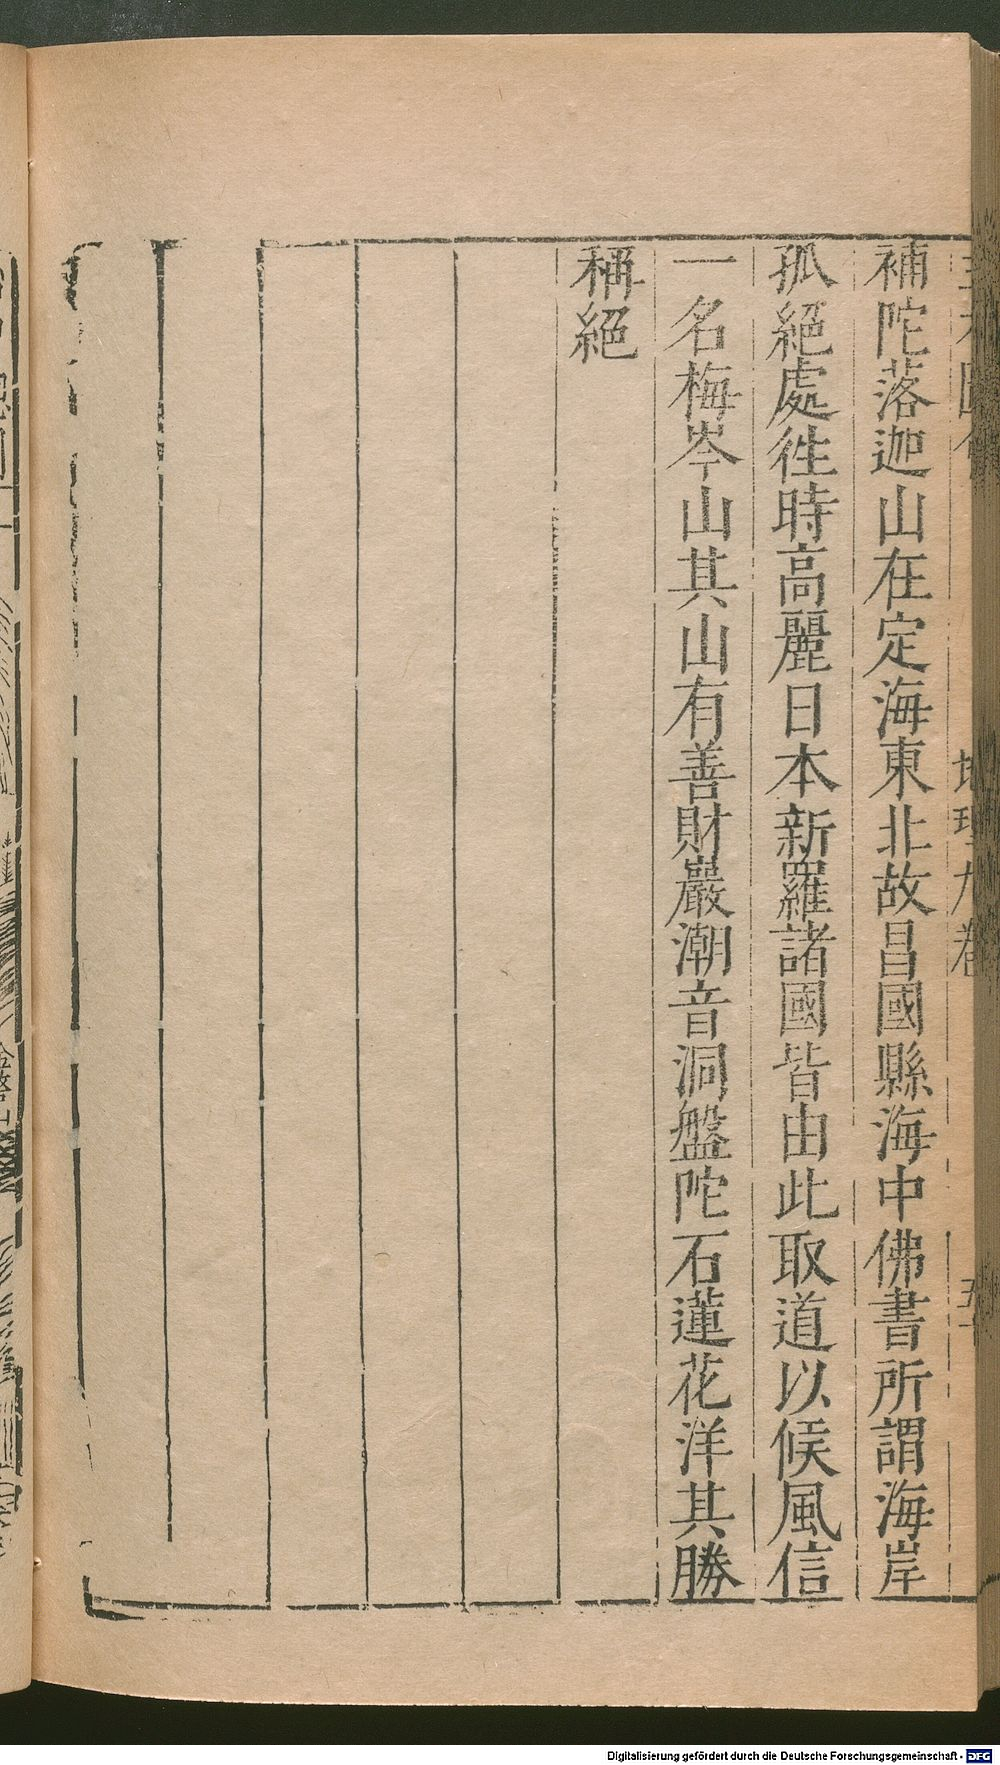 地理九卷
補陀落迦山在定海東北故昌國縣海中佛書所謂海岸
孤絕處徃時高麗日本新羅諸國皆由此取道以候風信
一名梅岑山其山有善財巖潮音洞盤陀石蓮花洋其勝
稱絕
Digitalisierung gefördert durch die Deutsche Forschungsgemeinschaft - DFG